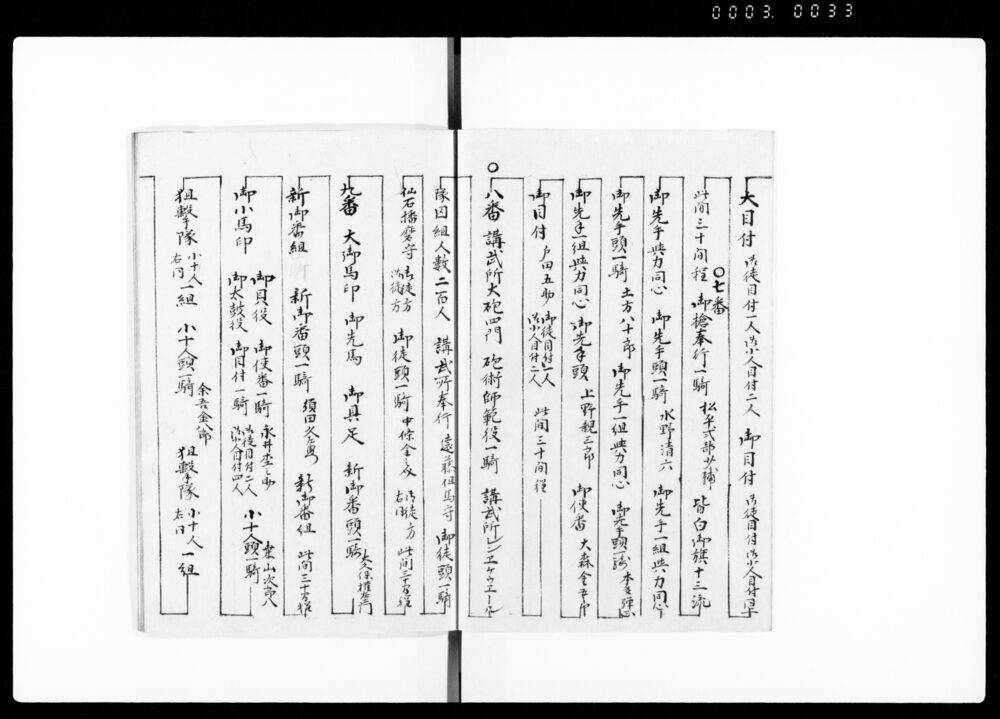 0003. 0033
大目付 御徒目付一人 御小人目付二人 御目付 御徒目付 御小人目付
〇七番
此間三十間程 御槍奉行一騎 松平式部少輔 皆白御旗十三流
御先手与力同心 御先手頭一騎 水野清六 御先手一組与力同心
御先手頭一騎 土方八十郎 御先手一組与力同心 御先手頭一騎
御先手一組与力同心 御先手頭 上野親三郎 御使番 大森金五郎
御目付 戸田五助 御徒目付二人 御小人目付二人 此間三十間程
〇八番 講武所大砲四門 砲術師範役一騎 講武所レンヱケウエール
隊四組人数二百人 講武所奉行 遠藤但馬守 御徒頭一騎
仙石播磨守 御徒方 御徒方 御徒頭一騎 中條金之丞 御徒方 右同 此間三十間程
九番 大御馬印 御先馬 御具足 新御番頭一騎 大久保権右衛門
新御番組 新御番頭一騎 須田久左衛門 新御番組 此間三十間程
御小馬印 御貝役 御太鼓役 御使番一騎 永井 御目付一騎 御徒目付二人 御小人目付四人 小十人頭一騎 桒山次郎八
狙撃隊 小十人 右同 一組 小十人頭一騎 余吾金八郎 狙撃隊 小十人 右同 一組